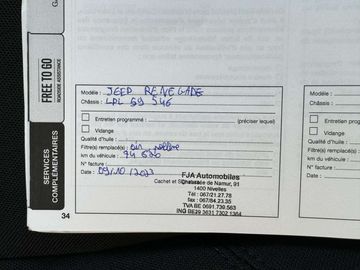 FREE TO GO
ROADSIDE ASSISTANCE
SERVICES
COMPLÉMENTAIRES
Modèle : JEEP RENEGADE
Châssis : LPL 59 546
Entretien programmé (préciser lequel)
Vidange
Qualité d'huile :
Filtre(s) remplacé(s) : air
km du véhicule :
N° facture :
Date : 09/10/2023
Cachet et
FJA Automobiles
Chaussée de Namur, 91
1400 Nivelles
Tél : 067/21.27.78
fax : 067/84.23.35
TVA BE 0691.739.563
ING BE29 3631 7302 1364
34
Modèle :
Châssis :
Entretien
Vidange
Qualité d'huile
Filtre(s) remplacé(s)
km du véhicule
N° facture :
Date :